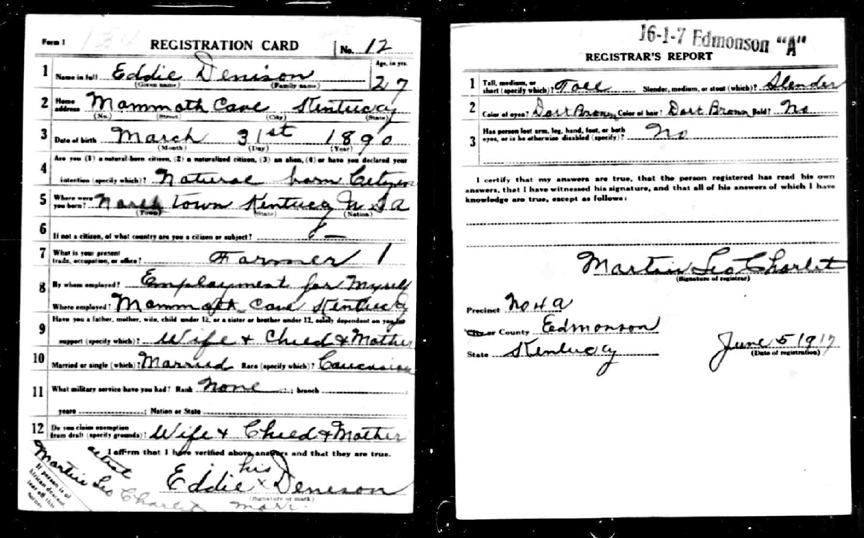 Form 1 REGISTRATION CARD No. 12
1 Name in full Eddie Denison Age, in yrs. 27
(Given name) (Family name)
2 Home address Mammoth Cave Kentucky
(No.) (Street) (City) (State)
3 Date of birth March 31st 1890
(Month) (Day) (Year)
4 Are you (1) a natural-born citizen, (2) a naturalized citizen, (3) an alien, (4) or have you declared your
intention (specify which)? Natural born Citizen
5 Where were you born? Town Kentucky U SA
(Town) (State) (Nation)
6 If not a citizen, of what country are you a citizen or subject?
7 What is your present trade, occupation, or office? Farmer 1
8 By whom employed? Employment for Myself
Where employed? Mammoth Cave Kentucky
9 Have you a father, mother, wife, child under 12, or a sister or brother under 12, solely dependent on you for
support (specify which)? Wife + Child + Mother
10 Married or single (which)? Married Race (specify which)? Caucasian
11 What military service have you had? Rank None ; branch
years ; Nation or State
12 Do you claim exemption from draft (specify grounds)? Wife + Child + Mother
I affirm that I have verified above answers and that they are true.
his
Eddie x Deneson
(Signature or mark)
mark
Martin Leo Charlet
If person is of African descent, tear off this corner.
16-1-7 Edmonson "A"
REGISTRAR'S REPORT
1 Tall, medium, or short (specify which)? Tall Slender, medium, or stout (which)? Slender
2 Color of eyes? Dark Brown Color of hair? Dark Brown Bald? No
3 Has person lost arm, leg, hand, foot, or both eyes, or is he otherwise disabled (specify)? No
I certify that my answers are true, that the person registered has read his own
answers, that I have witnessed his signature, and that all of his answers of which I have
knowledge are true, except as follows:
Martin Leo Charlet
(Signature of registrar)
Precinct No 4 a
City or County Edmonson
State Kentucky
June 5 1917
(Date of registration)